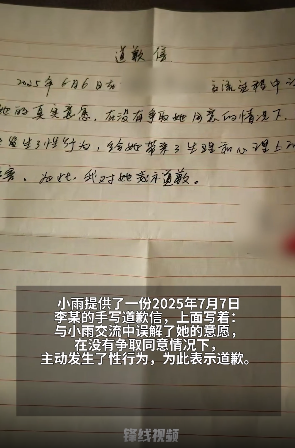 道歉信
2025年6月6日在 交流过程中误
她的真实意愿，在没有争取她同意的情况下，
发生了性行为，给她带来了生理和心理上
害，为此，我对她表示道歉。
小雨提供了一份2025年7月7日
李某的手写道歉信，上面写着：
与小雨交流中误解了她的意愿，
在没有争取同意情况下，
主动发生了性行为，为此表示道歉。
锋线视频